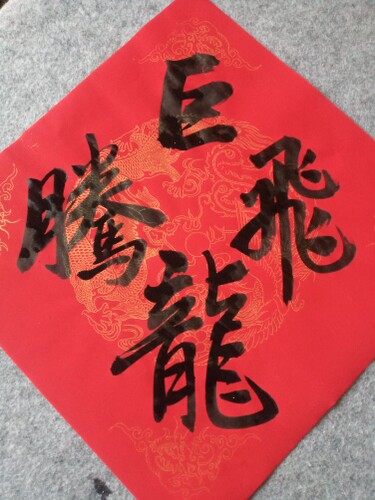 巨
龍
飛
騰